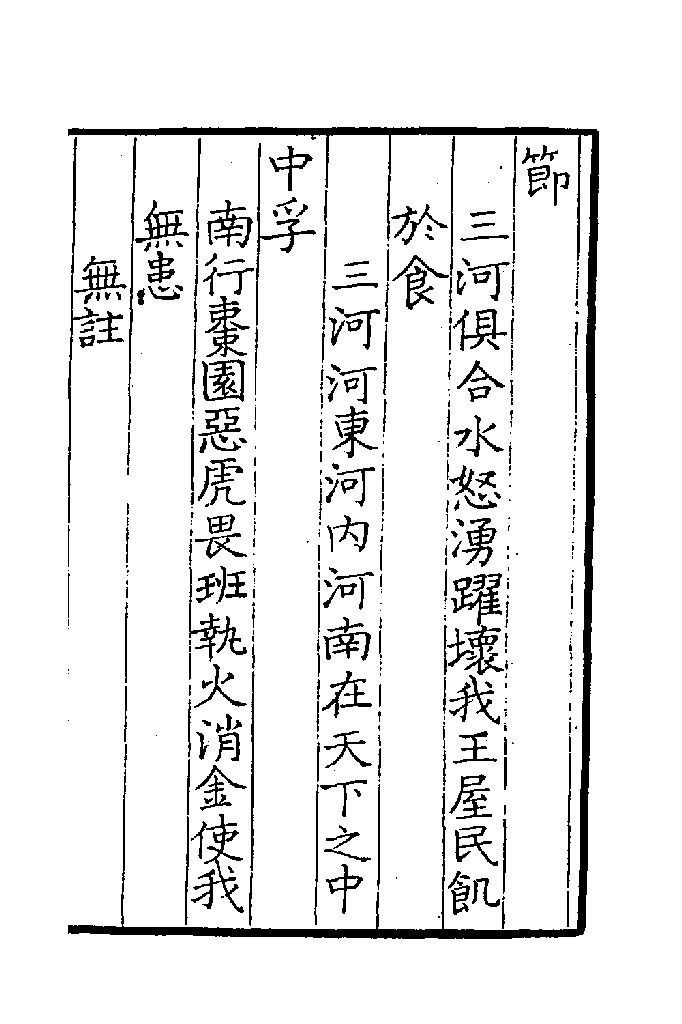 節
三河俱合水怒湧躍壞我王屋民飢
於食
三河河東河内河南在天下之中
中孚
南行棗園惡虎畏班執火消金使我
無患
無註